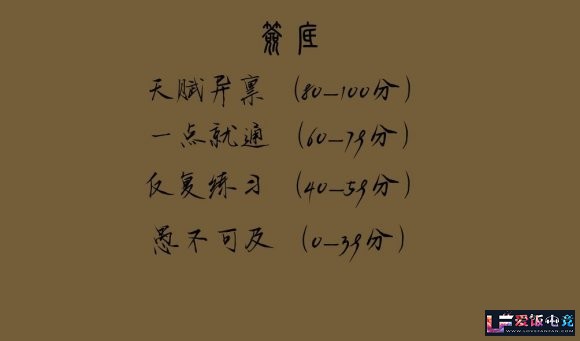 签底
天赋异禀 (80—100分)
一点就通 (60—79分)
反复练习 (40—59分)
愚不可及 (0—39分)
LF 爱饭电竞
WWW.LOVEFANFAN.COM